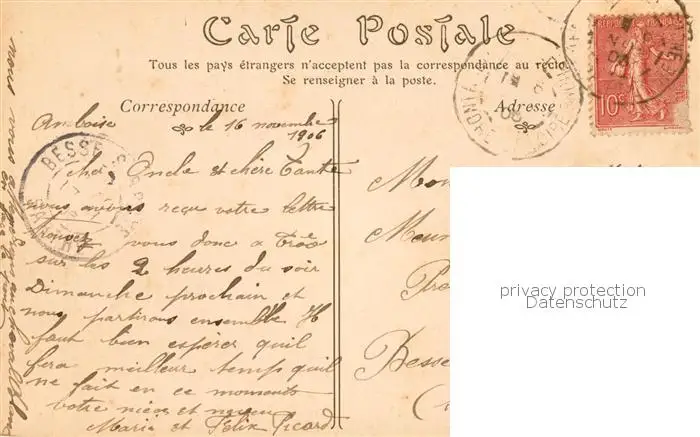 Carte Postale
Tous les pays étrangers n'acceptent pas la correspondance au recto
Se renseigner à la poste.
Correspondance
Adresse
Amboise le 16 novembre
1906
cher Oncle et chère Tante
nous avons reçu votre lettre
trouvez vous donc a
sur les 2 heures du soir
Dimanche prochain et
nous partirons ensemble Il
faut bien espérer quil
fera meilleur temps quil
ne fait en ce moments
votre nièce et neveu
Marie et Felix Picard
nous vous
REPUBLIQUE FRANÇAISE
10c
BESSE
INDRE
Mon
Meun
Pro
Besse
privacy protection
Datenschutz